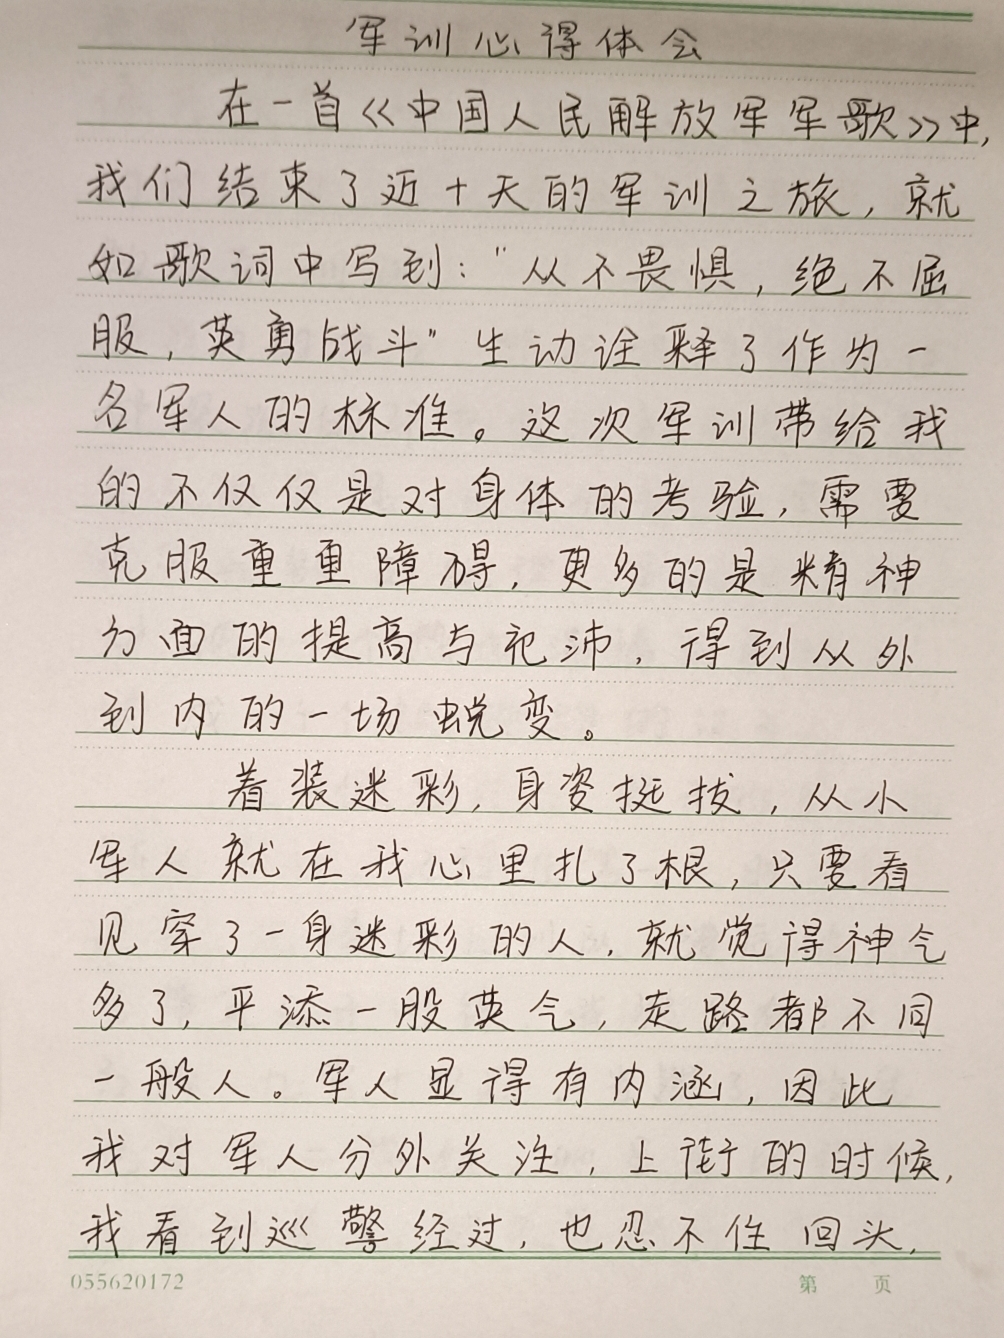 军训心得体会
在一首《中国人民解放军军歌》中,
我们结束了近十天的军训之旅，就
如歌词中写到："从不畏惧，绝不屈
服，英勇战斗"生动诠释了作为一
名军人的标准。这次军训带给我
的不仅仅是对身体的考验，需要
克服重重障碍，更多的是精神
方面的提高与充沛，得到从外
到内的一场蜕变。
着装迷彩，身姿挺拔，从小
军人就在我心里扎了根，只要看
见穿了一身迷彩的人，就觉得神气
多了，平添一股英气，走路都不同
一般人。军人显得有内涵，因此
我对军人分外关注，上街的时候，
我看到巡警经过，也忍不住回头，
055620172
第 页